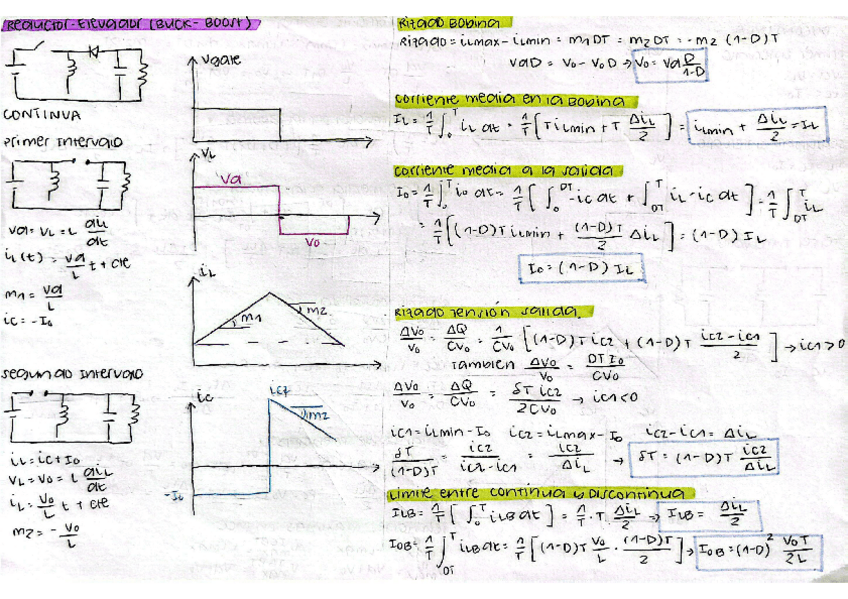 REDUCTOR-ELEVADOR (BUCK-BOOST)
CONTINUA
Primer Intervalo
Vd = VL = L diL/dt
iL(t) = Vd/L t + cte
m1 = Vd/L
ic = -Io
Segundo Intervalo
iL = ic + Io
VL = Vo = L diL/dt
iL = Vo/L t + cte
m2 = - Vo/L
Vgate
VL
Vd
Vo
iL
m1
m2
ic
ic2
m2
-IL
Rizado Bobina
Rizado = iLmax - iLmin = m1 DT = m2 DT = -m2 (1-D)T
Vd D = Vo - Vo D → Vo = Vd D/1-D
Corriente media en la Bobina
IL = 1/T ∫0T iL dt = 1/T [T iLmin + T ΔiL/2] = iLmin + ΔiL/2 = IL
Corriente media a la salida
Io = 1/T ∫0T io dt = 1/T [∫0DT -ic dt + ∫DTT iL - ic dt] = 1/T ∫DTT iL
= 1/T [(1-D)T iLmin + (1-D)T/2 ΔiL] = (1-D) IL
Io = (1-D) IL
Rizado Tensión salida
ΔVo/Vo = ΔQ/CVo = 1/CVo [(1-D)T ic2 + (1-D)T ic2-ic1/2] → ic1 > 0
También ΔVo/Vo = DT Io/CVo
ΔVo/Vo = ΔQ/CVo = δT ic2/2CVo → ic1 < 0
ic1 = iLmin - Io ic2 = iLmax - Io ic2 - ic1 = ΔiL
δT/(1-D)T = ic2/ic2-ic1 = ic2/ΔiL → δT = (1-D)T ic2/ΔiL
Límite entre continua y Discontinua
ILB = 1/T [∫0T iLB dt] = 1/T · T · ΔiL/2 → ILB = ΔiL/2
IOB = 1/T ∫DTT iLB dt = 1/T [(1-D)T Vo/L · (1-D)T/2] → IOB = (1-D)² VoT/2L